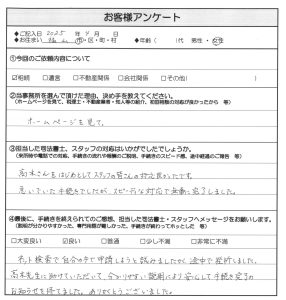 お客様アンケート
◆ご記入日 2025 年 4 月 日
◆お住まい 福山 市・区・町・村 ◆年齢( )代 男性・女性
①今回のご依頼内容について
☑相続 □遺言 □不動産関係 □会社関係 □その他( )
②当事務所を選んで頂けた理由、決め手を教えてください。
(ホームページを見て、税理士・不動産業者・知人等の紹介、初回相談の対応が良かったから 等)
ホームページを見て。
③担当した司法書士、スタッフの対応はいかがでしたでしょうか。
(来所時や電話での対応、手続きの流れや報酬のご説明、手続きのスピード感、途中経過のご報告 等)
高木さんをはじめとしてスタッフの皆さんの対応良かったです。
急いでいた手続きでしたが、スピーディな対応で無事に完了しました。
④最後に、手続きを終えられてのご感想、担当した司法書士・スタッフへメッセージをお願いします。
(説明が分かりやすかった、専門用語が難しかった、手続きが終わってホッとした 等)
□大変良い ☑良い □普通 □少し不満 □非常に不満
ネット検索で自分の力で申請しようと試みましたが途中で挫折しました。
高木先生に助けていただいて、分かりやすい説明により安心して手続き完了の
お知らせを得てました。ありがとうございました。